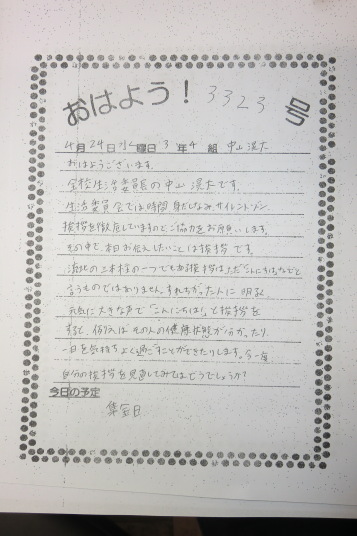 おはよう! 3323 号
4月24日 水曜日 3年4組 中山滉大
おはようございます。
全校生活委員長の中山滉大です。
生活委員会では時間、身だしなみ、サイレントゾーン、
挨拶を徹底していますのでご協力をお願いします。
その中で、本日お伝えしたいことは挨拶です。
の三本柱の一つでもある挨拶は、ただ「こんにちは」などと
言うものではありません。すれちがった人に 明るく
元気に大きな声で「こんにちは!」と挨拶を
すると、例えば その人の健康状態が分かったり、
一日を気持ちよく過ごすことができたりします。今一度、
自分の挨拶を見直してみてはどうでしょうか?
今日の予定
集金日